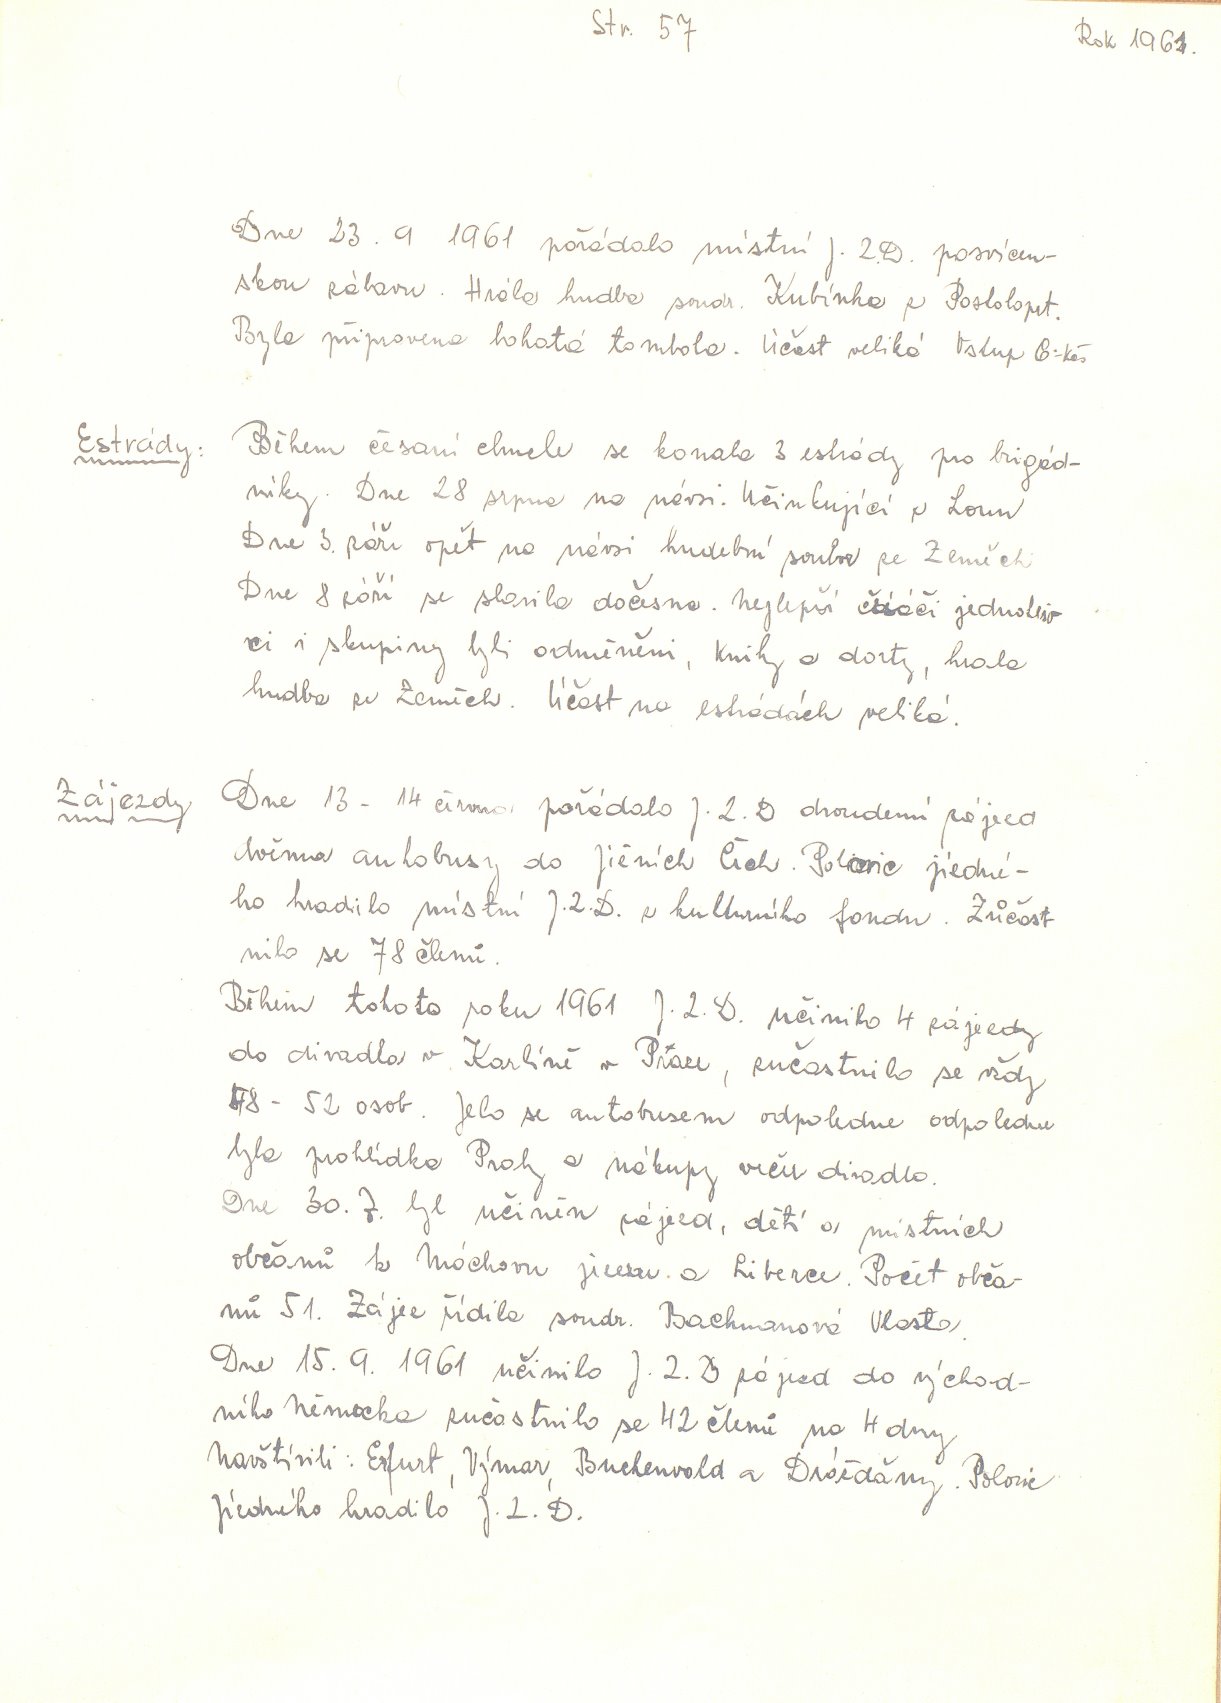 Str. 57
Rok 1961.
Dne 23. 9 1961 pořádalo místní J. Z.D. posvícen-
skou zábavu. Hrála hudba soudr. Kubínka z Postoloprt.
Byla připravena bohatá tombola. Účast veliká Vstup 6.- Kčs
Estrády: Během česaní chmele se konala 3 estrády pro brigád-
níky. Dne 28 srpna na návsi. Učinkující z Loun
Dne 3. září opět na návsi hudební soubor ze Zeměch
Dne 8 září se slavila dočesna. Nejlepší čsáči jednotliv-
ci i skupiny byli odměněni, knihy a dorty, hrála
hudba ze Zeměch. Účast na estrádách veliká.
Zájezdy Dne 13 - 14 června pořádalo J. Z. D dvoudení zájezd
dvěma autobusy do Jižních Čech. Polovic jízdné-
ho hradilo místní J.Z.D. z kulturního fondu. Zůčast
nilo se 78 členů.
Během tohoto roku 1961 J. Z. D. učinilo 4 zájezdy
do divadla v Karlíně v Praze, zučastnilo se vždy
48 - 52 osob. Jelo se autobusem odpoledne odpoledne
byla prohlídka Prahy a nákupy večer divadlo.
Dne 30. 7. byl učiněn zájezd, dětí a místních
občanů k Máchovu jezeru a Liberce. Počet obča-
nů 51. Zájez řídila soudr. Bachmanová Vlasta.
Dne 15. 9. 1961 učinilo J. Z. D zájezd do východ-
ního Německa zučastnilo se 42 členů na 4 dny
Navštívili: Erfurt, Výmar, Buchenvald a Drážďány. Polovic
jízdného hradilo J. Z. D.